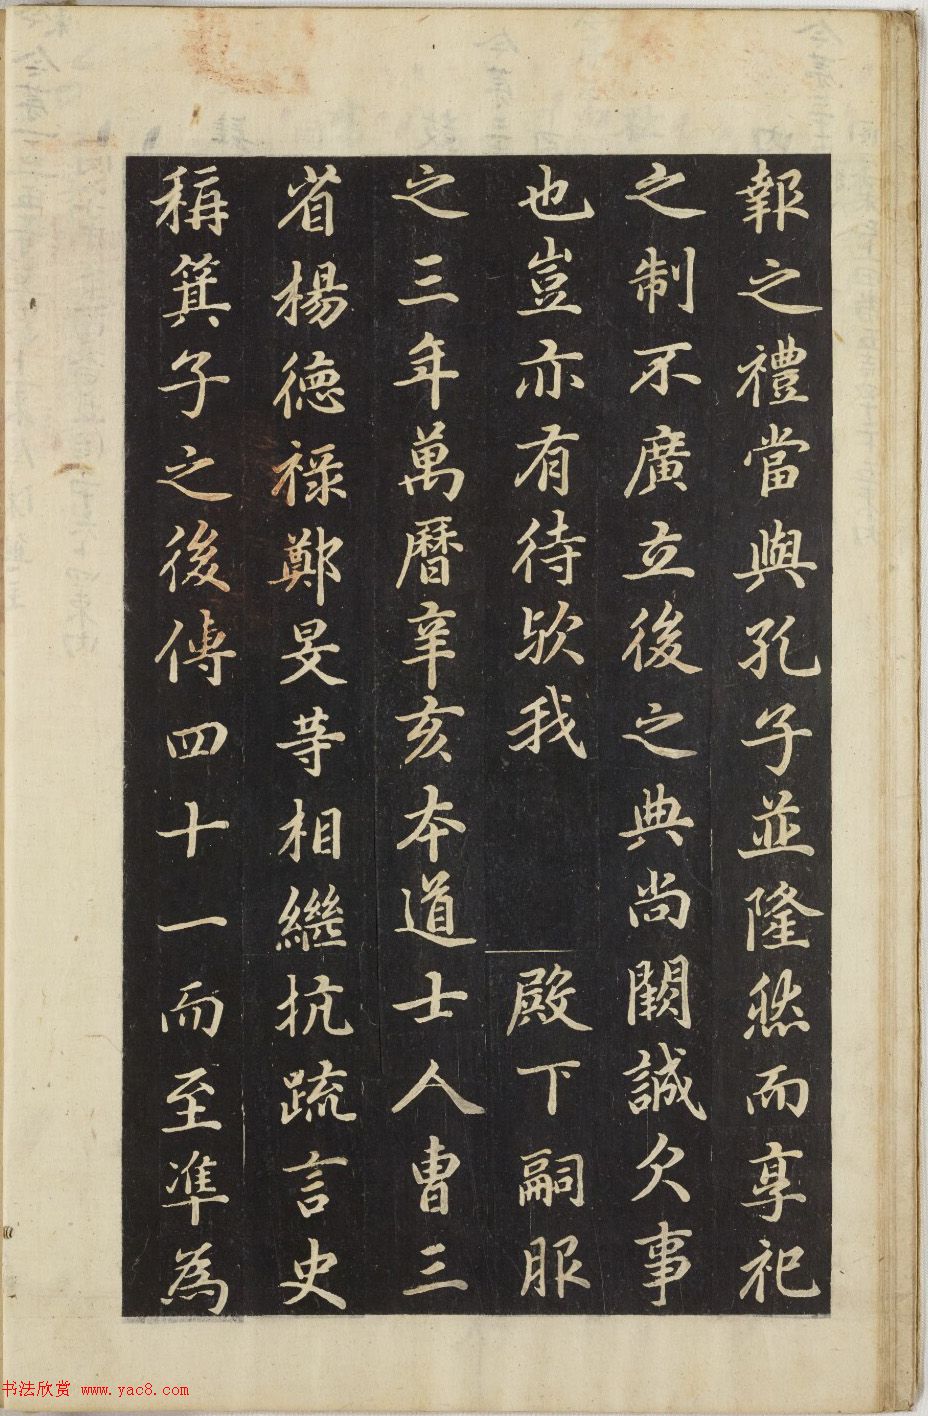 報之禮當與孔子並隆然而享祀
之制不廣立後之典尚闕誠欠事
也豈亦有待欤我 殿下嗣服
之三年萬曆辛亥本道士人曺三
省楊德祿鄭旻等相繼抗疏言史
稱箕子之後傳四十一而至準為
书法欣赏 www.yac8.com